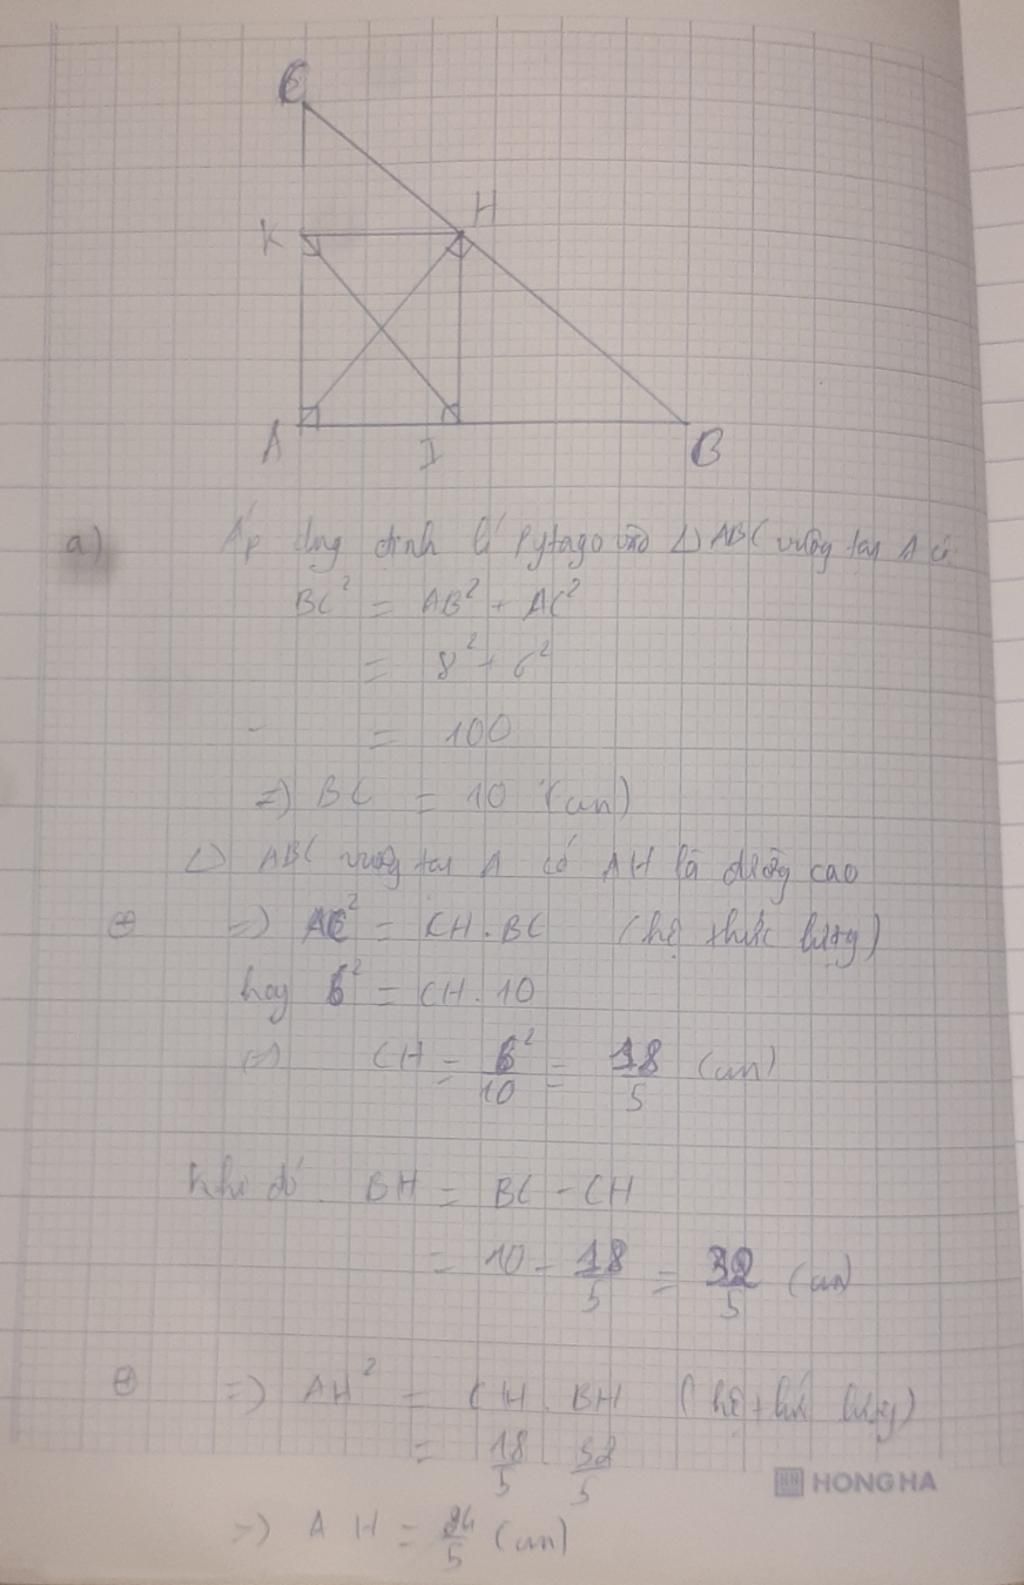 C
H
K
A
I
B
a) Áp dụng định lí Pytago vào △ABC vuông tại A có
BC² = AB² + AC²
= 8² + 6²
= 100
=) BC = 10 (cm)
△ ABC vuông tại A có AH là đường cao
⊕ =) AC² = CH.BC (hệ thức lượng)
hay 6² = CH.10
(=) CH = 6²/10 = 18/5 (cm)
Khi đó. BH = BC - CH
= 10 - 18/5 = 32/5 (cm)
⊕ =) AH² = CH.BH (hệ thức lượng)
= 18/5 . 32/5
=) AH = 24/5 (cm)
HONG HA